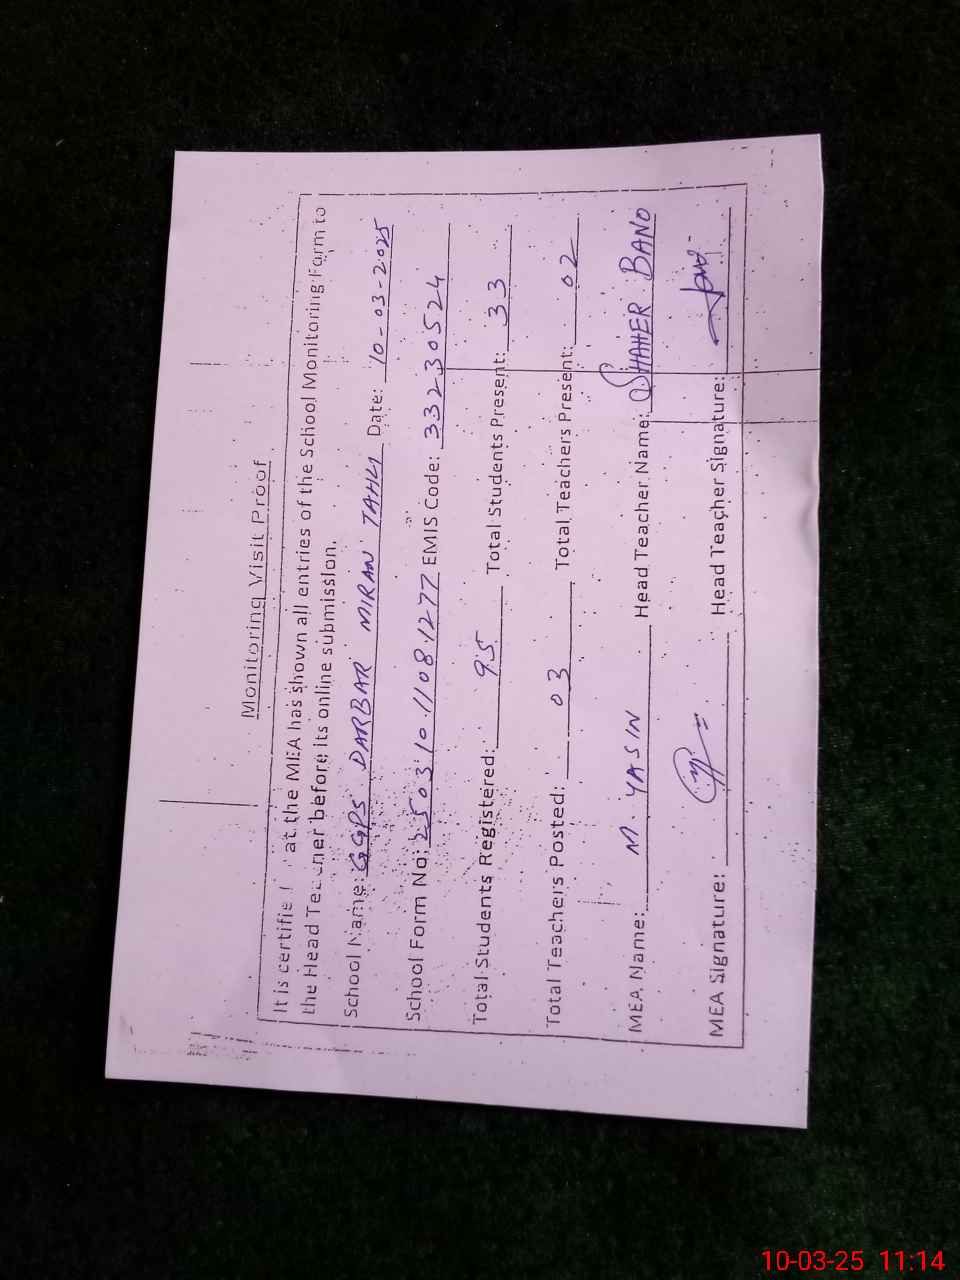 Monitoring Visit Proof
It is certifie at the MEA has shown all entries of the School Monitoring Form to
the Head Teacher before its online submission.
School Name: GGPS DARBAR MIRAN TAHLI Date: 10-03-2025
School Form No: 25031011081277 EMIS Code: 33230524
Total Students Registered: 95 Total Students Present: 33
Total Teachers Posted: 03 Total Teachers Present: 02
MEA Name: M. YASIN Head Teacher Name: SHAHER BANO
MEA Signature: Head Teacher Signature:
10-03-25 11:14